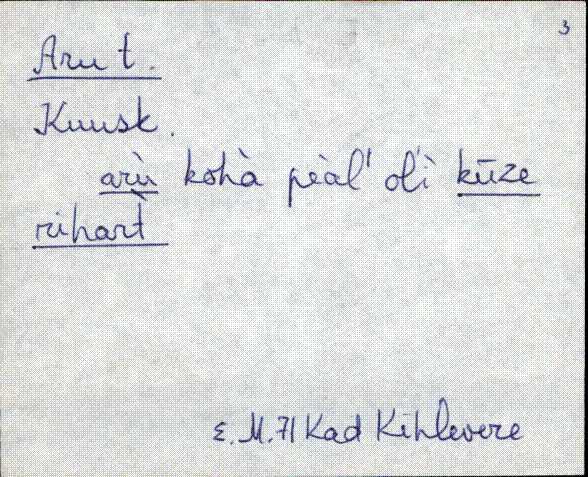 3
Aru t.
Kuusk.
arù kohà peàl' ol'ì kūze
rihart̀
E. M. 71 Kad Kihlevere